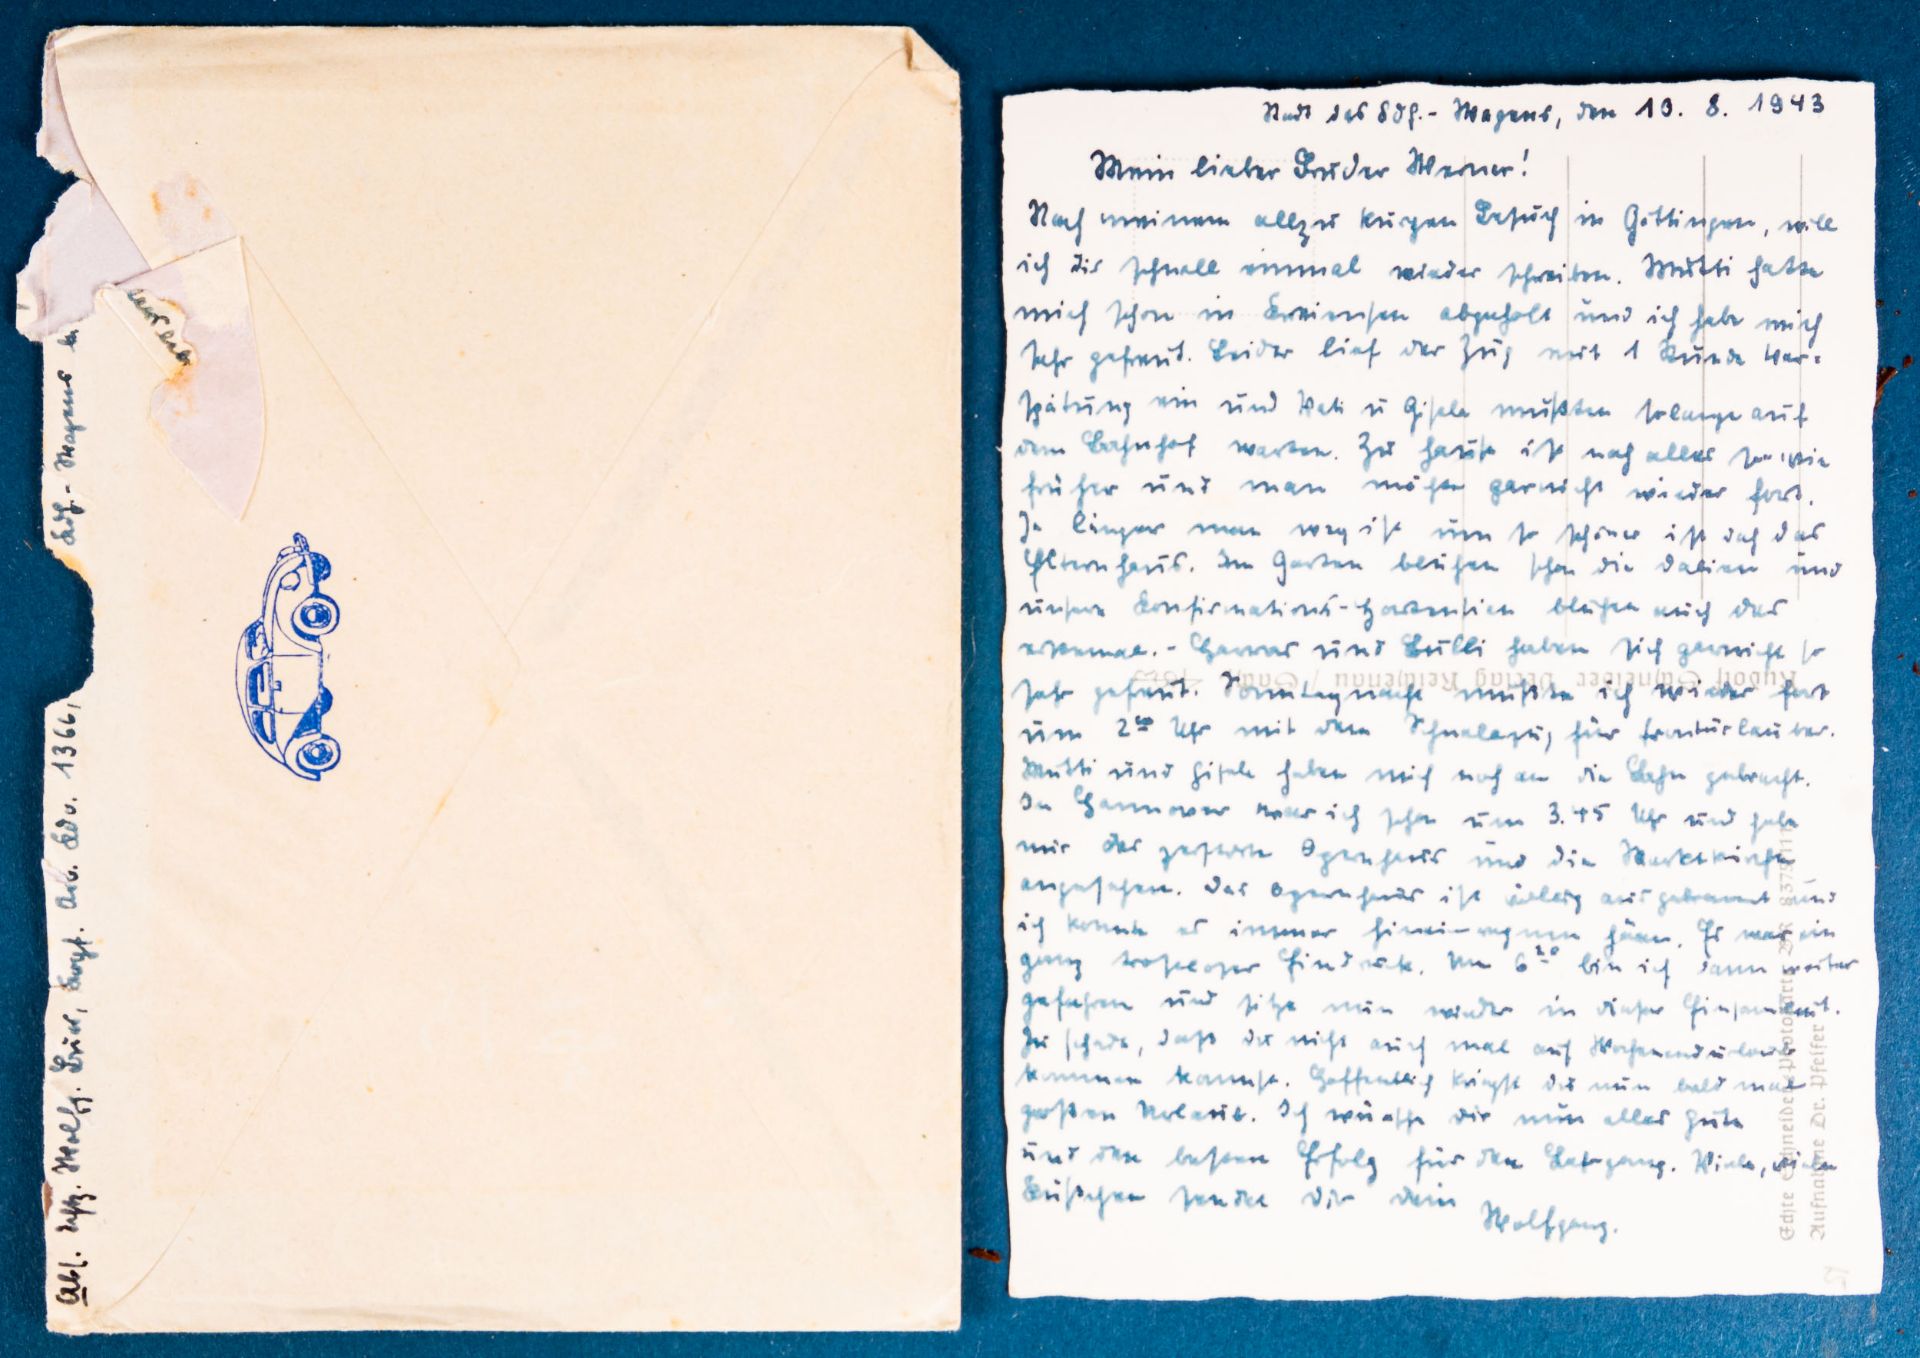 Abs. Schtz. Wolfg. Bues, Kdf.-Wagens
Stadt des Kdf.-Wagens, den 10. 8. 1943
Mein lieber Bruder Werner!
Nach meinem allzu kurzen Besuch in Göttingen, will
ich dir schnell einmal wieder schreiben. Mutti hatte
mich schon in Kreiensen abgeholt und ich habe mich
sehr gefreut. Leider lief der Zug mit 1 Stunde Ver-
spätung ein und Vati u Gisela mußten solange auf
dem Bahnhof warten. Zu hause ist noch alles so wie
früher und man möchte garnicht wieder fort.
Je länger man weg ist um so schöner ist doch das
Elternhaus. Im Garten blühen schon die Dalien und
unsere Konfirmations-Hortensien blühen auch das
erstemal. - Harras und Bulli haben sich garnicht so
sehr gefreut. Sonntagnacht mußte ich wieder fort
um 2 Uhr mit dem Schnellzug für Fronturlauber.
Mutti und Gisela haben mich noch an die Bahn gebracht.
In Hannover war ich schon um 3.45 Uhr und habe
mir das zerstörte Opernhaus und die Marktkirche
angesehen. Das Opernhaus ist völlig ausgebrannt und
ich konnte es immer hinein regnen hören. Es war ein
ganz trostloser Eindruck. Um 6 bin ich dann weiter
gefahren und sitze nun wieder in dieser Einsamkeit.
Zu schade, daß du nicht auch mal auf Wochenendurlaub
kommen kannst. Hoffentlich kriegst du nun bald mal
großen Urlaub. Ich wünsche dir nun alles gute
und den besten Erfolg für den Lehrgang. Viele, viele
Küßchen sendet dir dein
Wolfgang.
Rudolf Schneider Verlag Reichenau / Sachs.
Echte Schneider-Photokarte
Aufnahme Dr. Pfeifer